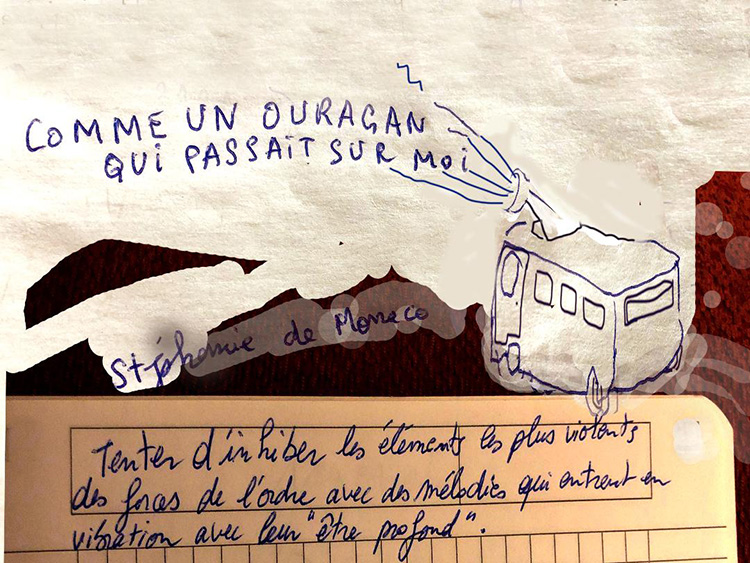 COMME UN OURAGAN
QUi PASSAiT SUR Moi
Stéphanie de Monaco
Tenter d'inhiber les éléments les plus violents
des forces de l'ordre avec des mélodies qui entrent en
vibration avec leur "être profond".